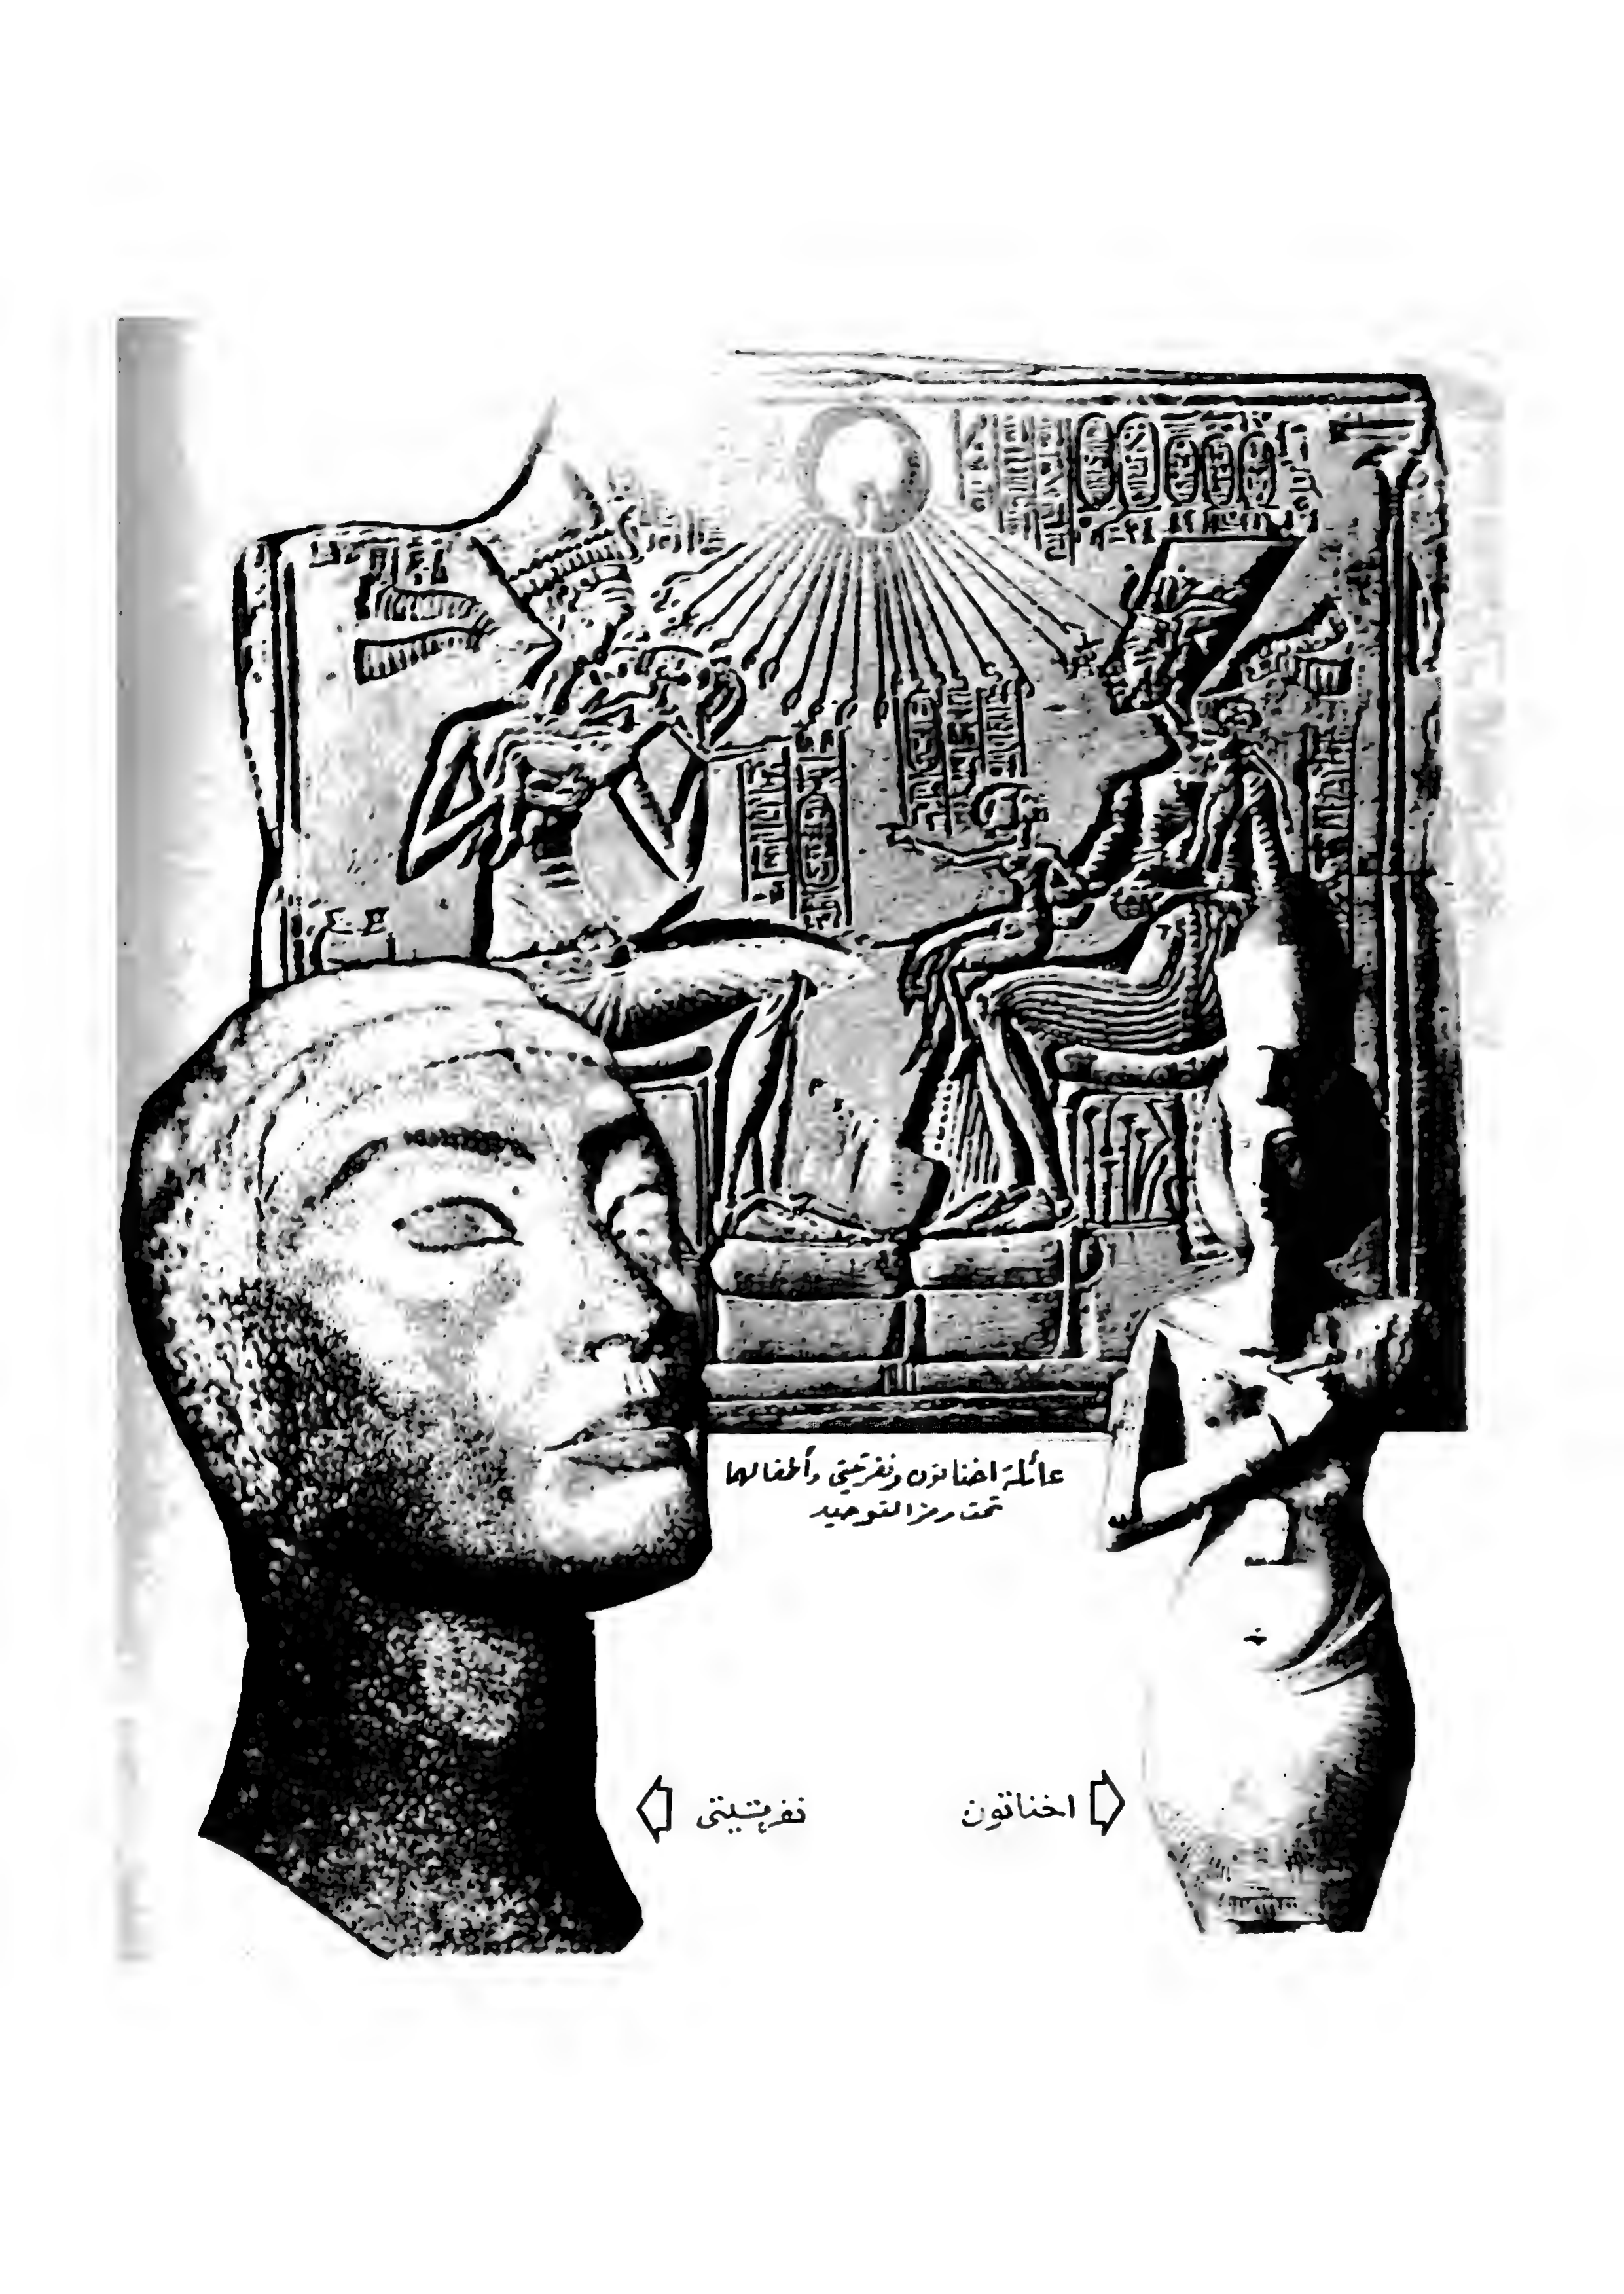 عائلة اخناتون ونفرتيتى وأطفالهما
تحت رمز التوحيد
اخناتون
نفرتيتى